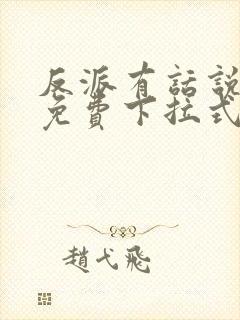 反派有話說
免費下拉式
趙戈飛